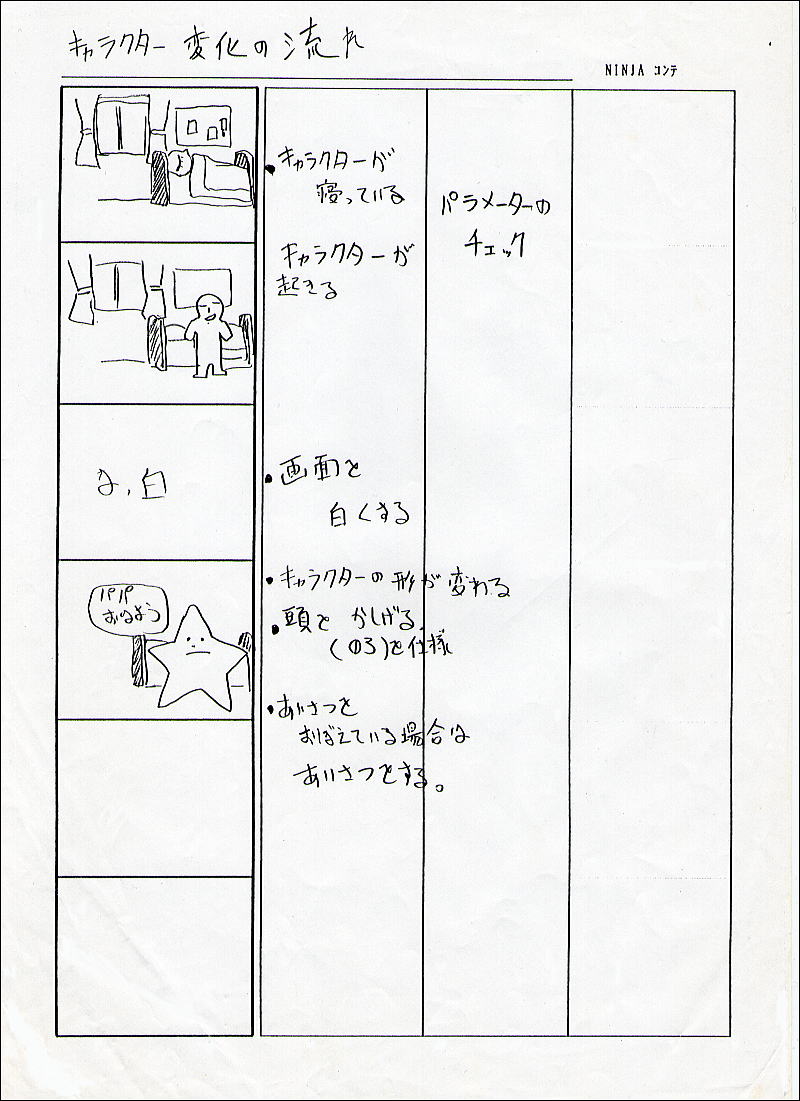 キャラクター 変化の流れ
NINJA コンテ
・キャラクターが
寝っている
パラメーターの
チェック
キャラクターが
起きる
・画面を
白くする
・キャラクターの形が変わる
・頭を かしげる。
パパ
おはよう
・あいさつを
おぼえている場合は
あいさつをする。